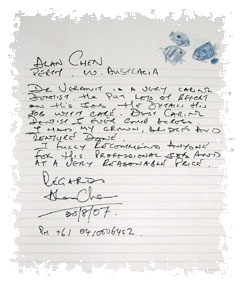 ALAN CHEN
PERTH W. AUSTRALIA
DR VERAWIT IS A VERY CARING
DENTIST. HE PUT LOTS OF EFFORT
ON HIS JOB. HE DETAILS HIS
JOB WITH CARE. BEST CARING
DENTIST I EVER COME ACROSS.
I HAD MY CROWN, BRIDGES AND
DENTURE DONE
I FULLY RECOMMEND ANYONE
FOR HIS PROFESSIONAL JOB AND
AT A VERY REASONABLE PRICE.
REGARDS
Alan Chen
30/8/07.
PH +61